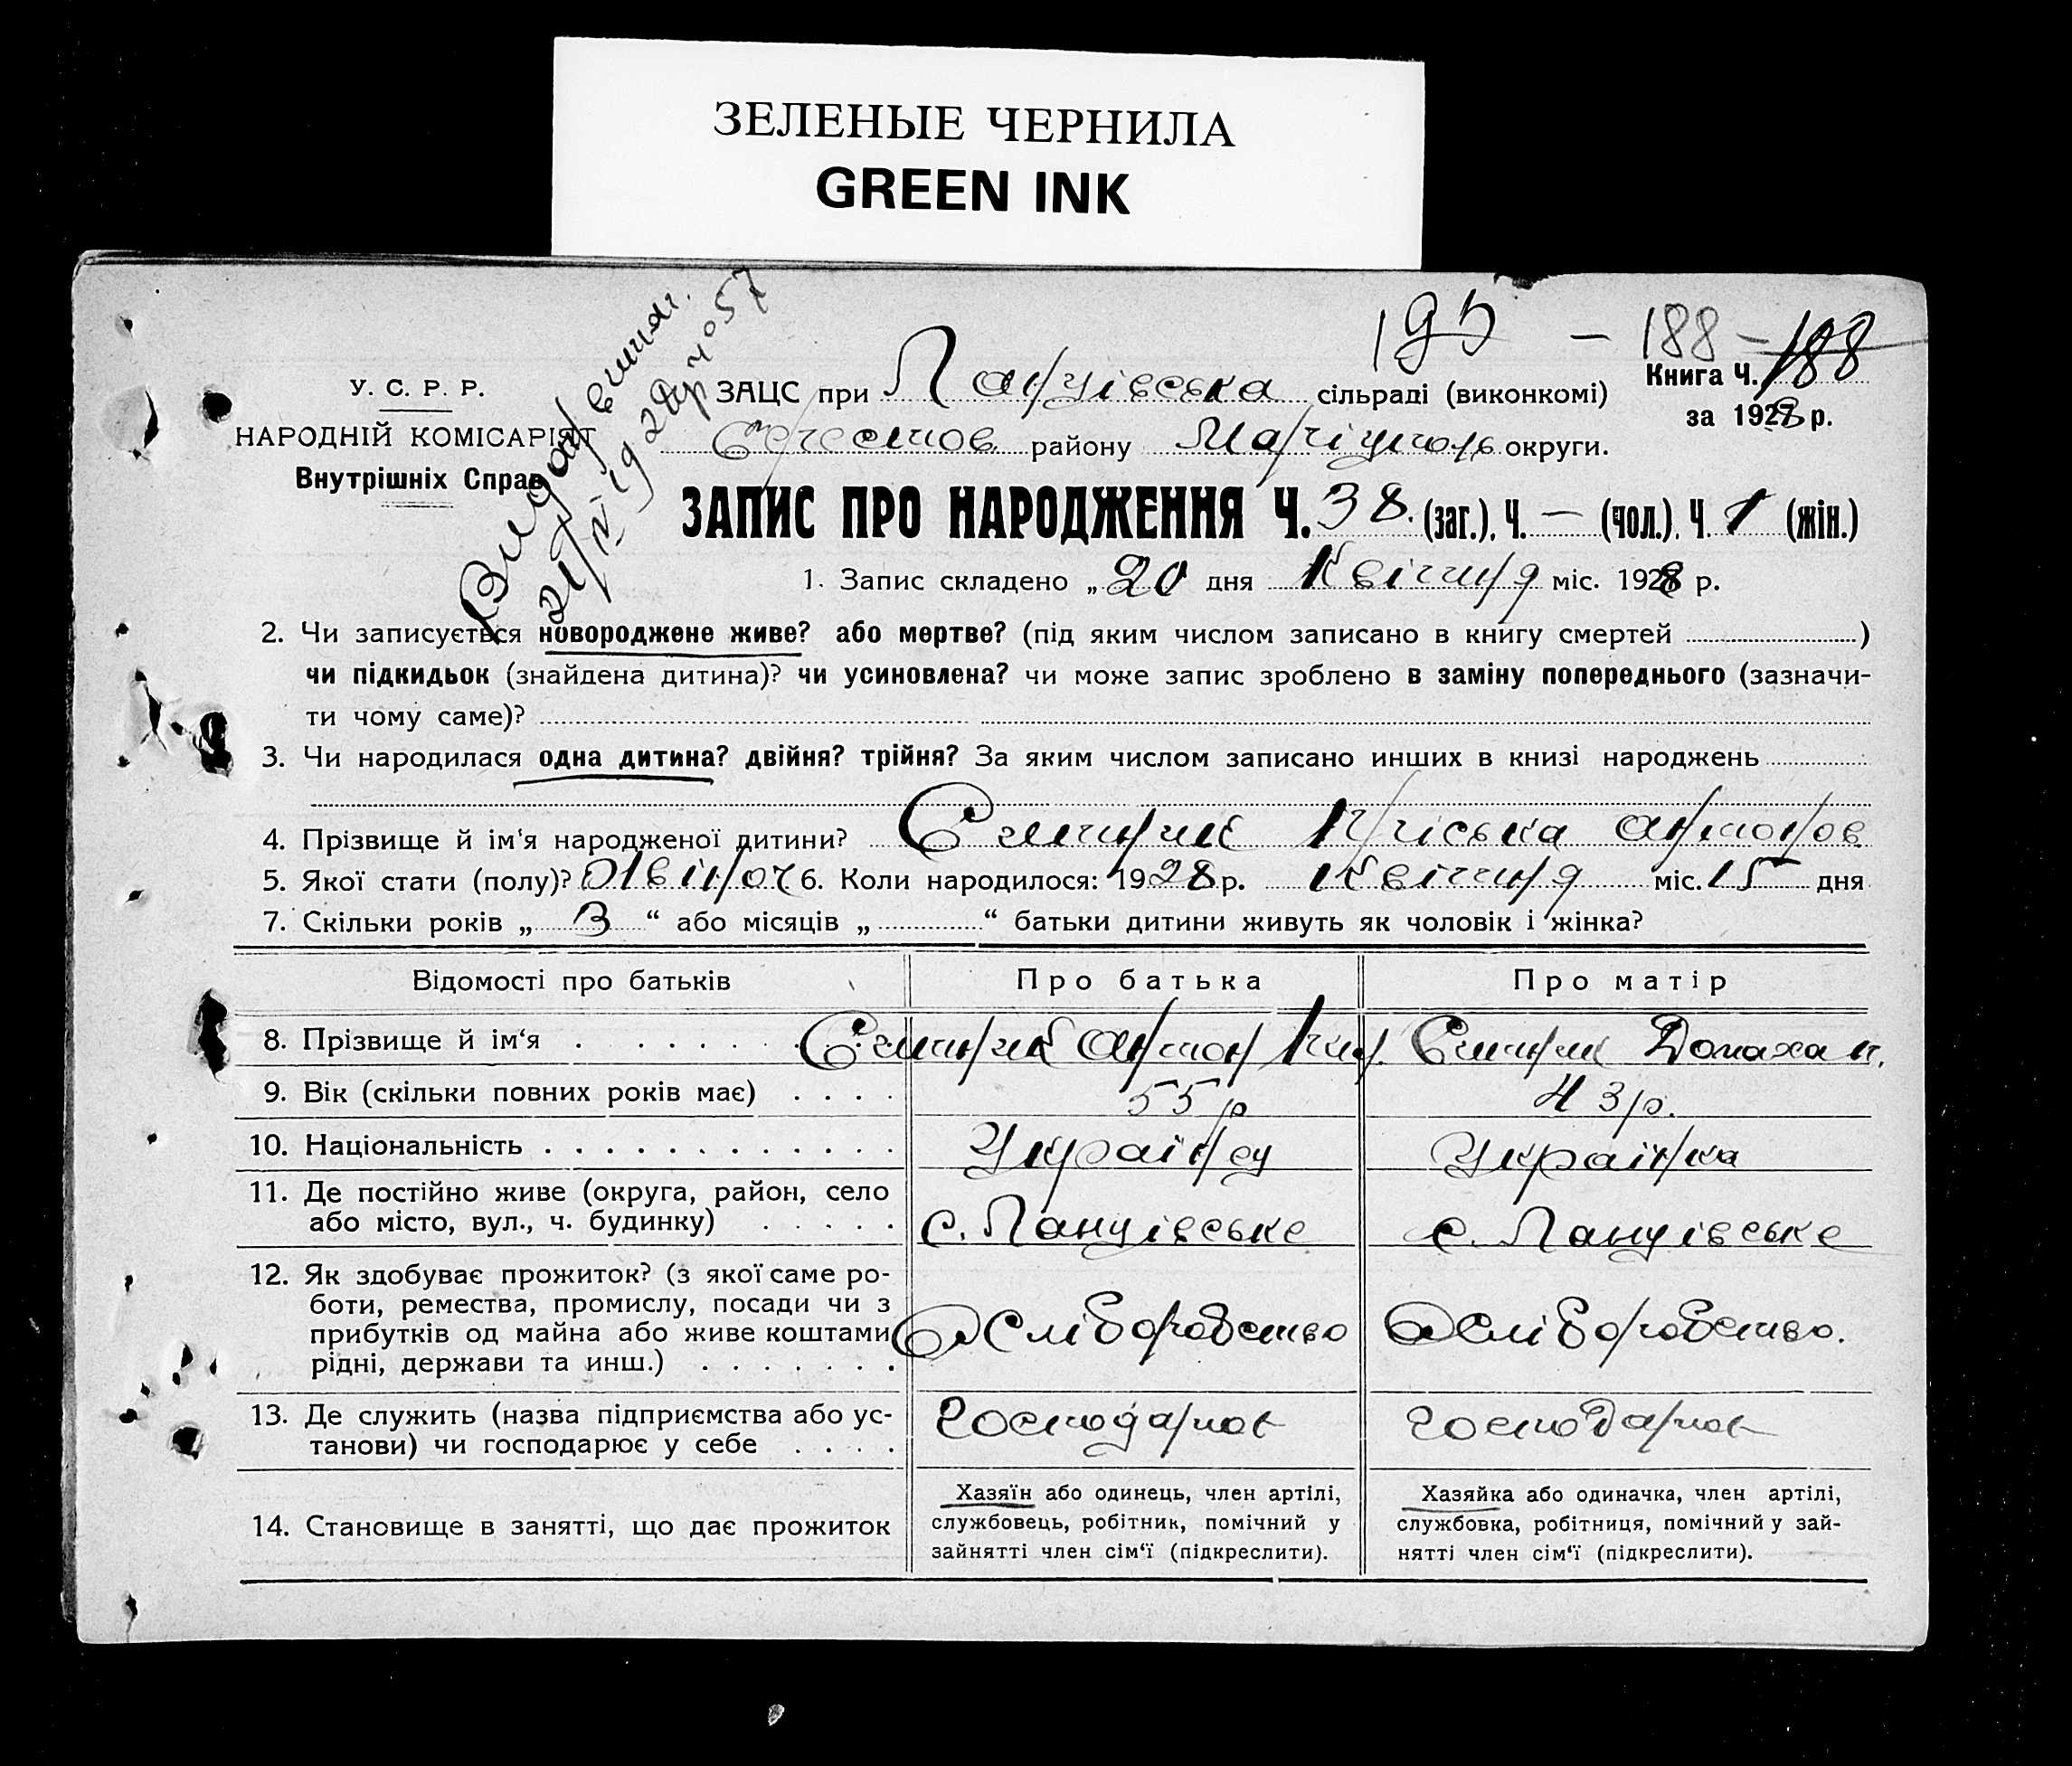 ЗЕЛЕНЫЕ ЧЕРНИЛА
GREEN INK
195 — 188 — 188
У. С. Р. Р.
НАРОДНІЙ КОМІСАРІЯТ
Внутрішніх Справ
ЗАЦС при Ланцівська сільраді (виконкомі)
Книга Ч. 188
за 1928 р.
району Маріупольс округи.
ЗАПИС ПРО НАРОДЖЕННЯ Ч. 38. (заг.), Ч. — (чол.), Ч. 1 (жін.)
1. Запис складено „ 20 дня Квітня міс. 1928 р.
2. Чи записується новороджене живе? або мертве? (під яким числом записано в книгу смертей )
чи підкидьок (знайдена дитина)? чи усиновлена? чи може запис зроблено в заміну попереднього (зазначи-
ти чому саме)?
3. Чи народилася одна дитина? двійня? трійня? За яким числом записано инших в книзі народжень
4. Прізвище й ім‘я народженої дитини? Пріська Антонов
5. Якої стати (полу)? Жіноч 6. Коли народилося: 1928 р. Квітня міс. 15 дня
7. Скільки років „ 3 “ або місяців „ “ батьки дитини живуть як чоловік і жінка?
Відомості про батьків Про батька Про матір
8. Прізвище й ім‘я Антон Домаха
9. Вік (скільки повних років має) 55 р 43 р.
10. Національність Українец Українка
11. Де постійно живе (округа, район, село
або місто, вул., ч. будинку) с. Ланцівське с. Ланцівське
12. Як здобуває прожиток? (з якої саме ро-
боти, ремества, промислу, посади чи з
прибутків од майна або живе коштами
рідні, держави та инш.) Хліборобство Хліборобство.
13. Де служить (назва підприємства або ус-
танови) чи господарює у себе Господарює Господарює
14. Становище в занятті, що дає прожиток
Хазяїн або одинець, член артілі,
службовець, робітник, помічний у
зайнятті член сім‘ї (підкреслити).
Хазяйка або одиначка, член артілі,
службовка, робітниця, помічний у зай-
нятті член сім‘ї (підкреслити).